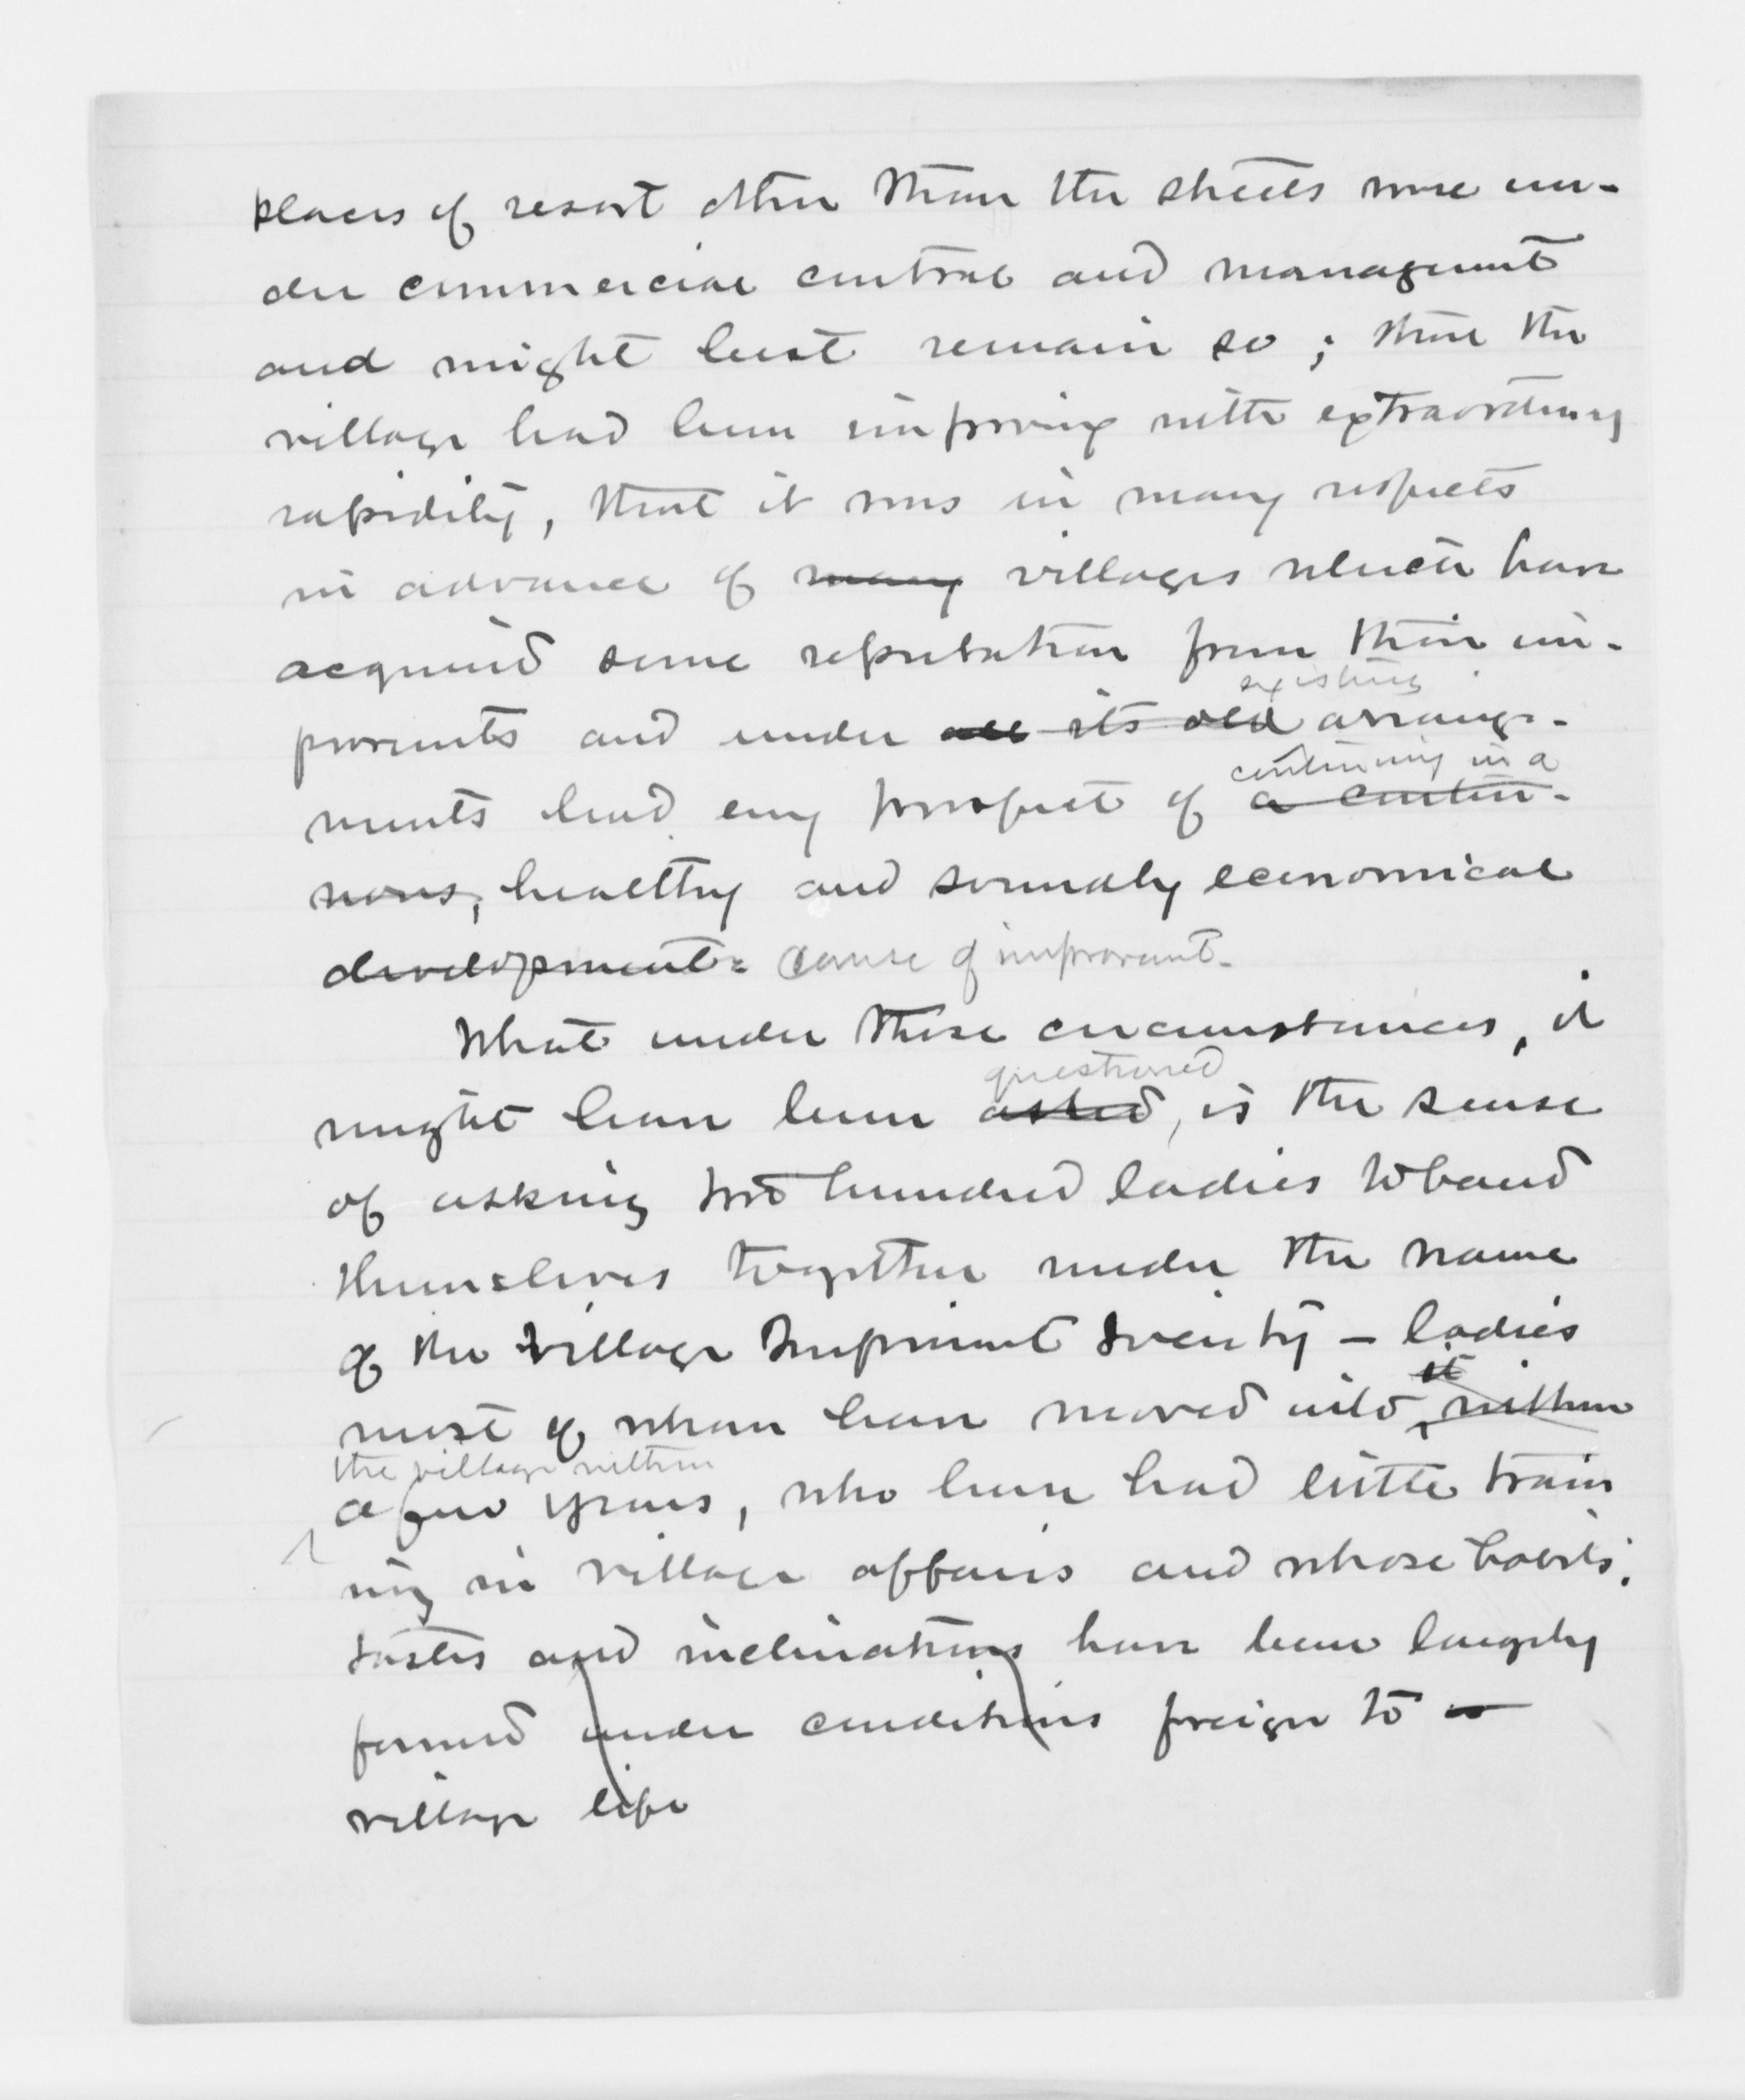 places of resort other than the streets were un-
der commercial control and management
and might best remain so; that the
village had been improving with extraordinary
rapidity, that it was in many respects
in advance of many villages which have
acquired some reputation from their im-
existing
provements and under all its old arrange-
continuing in a
ments had every prospect of a contin-
uous, healthy and soundly economical
development. course of improvement.
What under these circumstances, it
questioned
might have been asked, is the sense
of asking two hundred ladies to band
themselves together under the name
of the Village Improvement Society - ladies
it
most of whom have moved into within
the village within
a few years, who have had little train
ing in village affairs and whose habits,
tastes and inclinations have been largely
formed under conditions foreign to a
village life